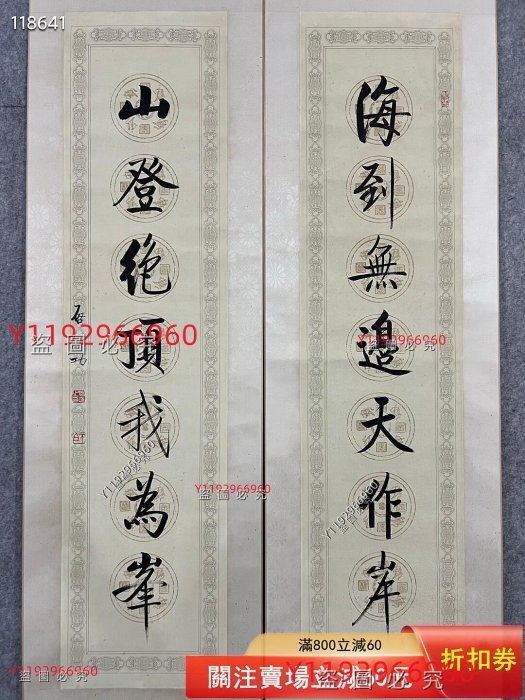 118641
海到無邊天作岸
山登絕頂我為峯
啟功
Y1192966960
盜圖必究
Y1192966960
盜圖必究
Y1192966960
盜圖必究
Y1192966960
盜圖必究
Y1192966960
盜圖必究
Y1192966960
盜圖必究
滿800立減60
關注賣場立減60元
折扣券